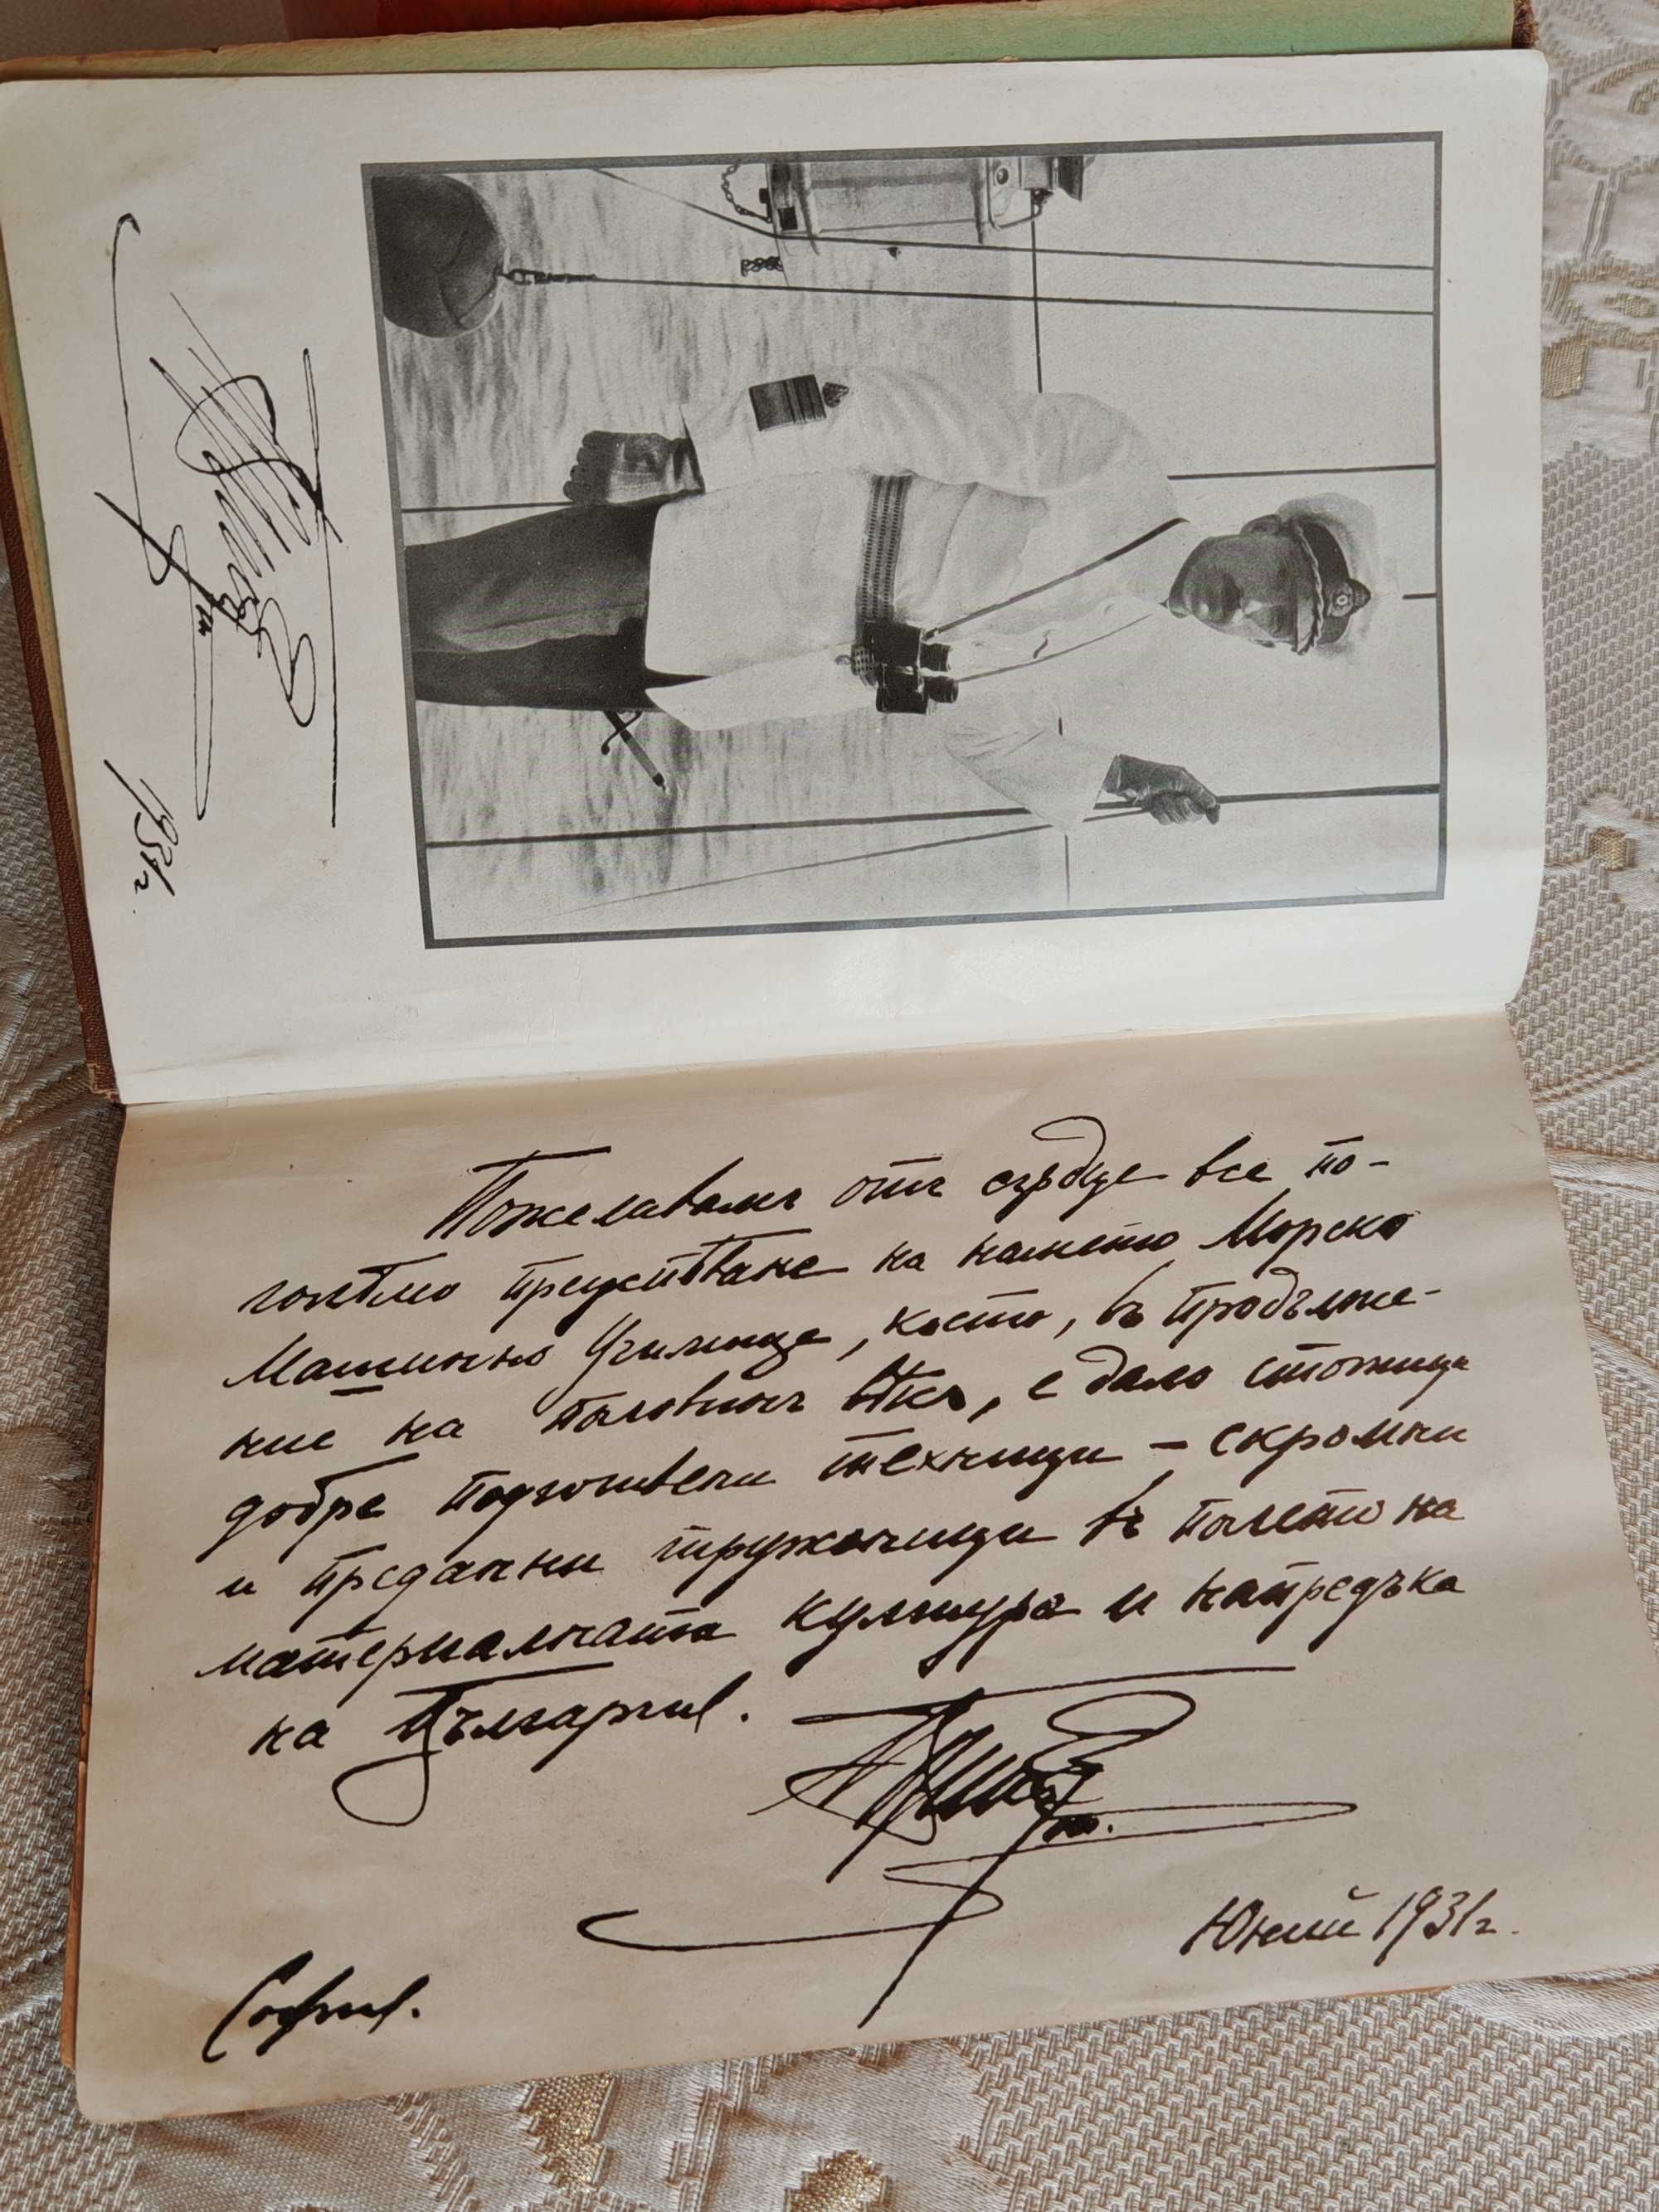 1931г.
Пожелавамъ отъ сърдце все по-
голѣмо преуспѣване на нашето Морско
Машинно Училище, което, въ продълже-
ние на половинъ вѣкъ, е дало стотици
добре подготвени техници – скромни
и преданни труженици въ полето на
материалната култура и напредъка
на България.
Юний 1931г.
София.